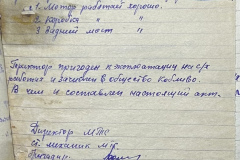 1. Мотор работает хорошо.
2. Коробка " "
3. Задний мост " "
Трактор пригоден к эксплуатации на с/х
работах и в общество Коблево.
В чем и составлен настоящий акт.
Директор МТС
Ст. механик МТС
Бригадир